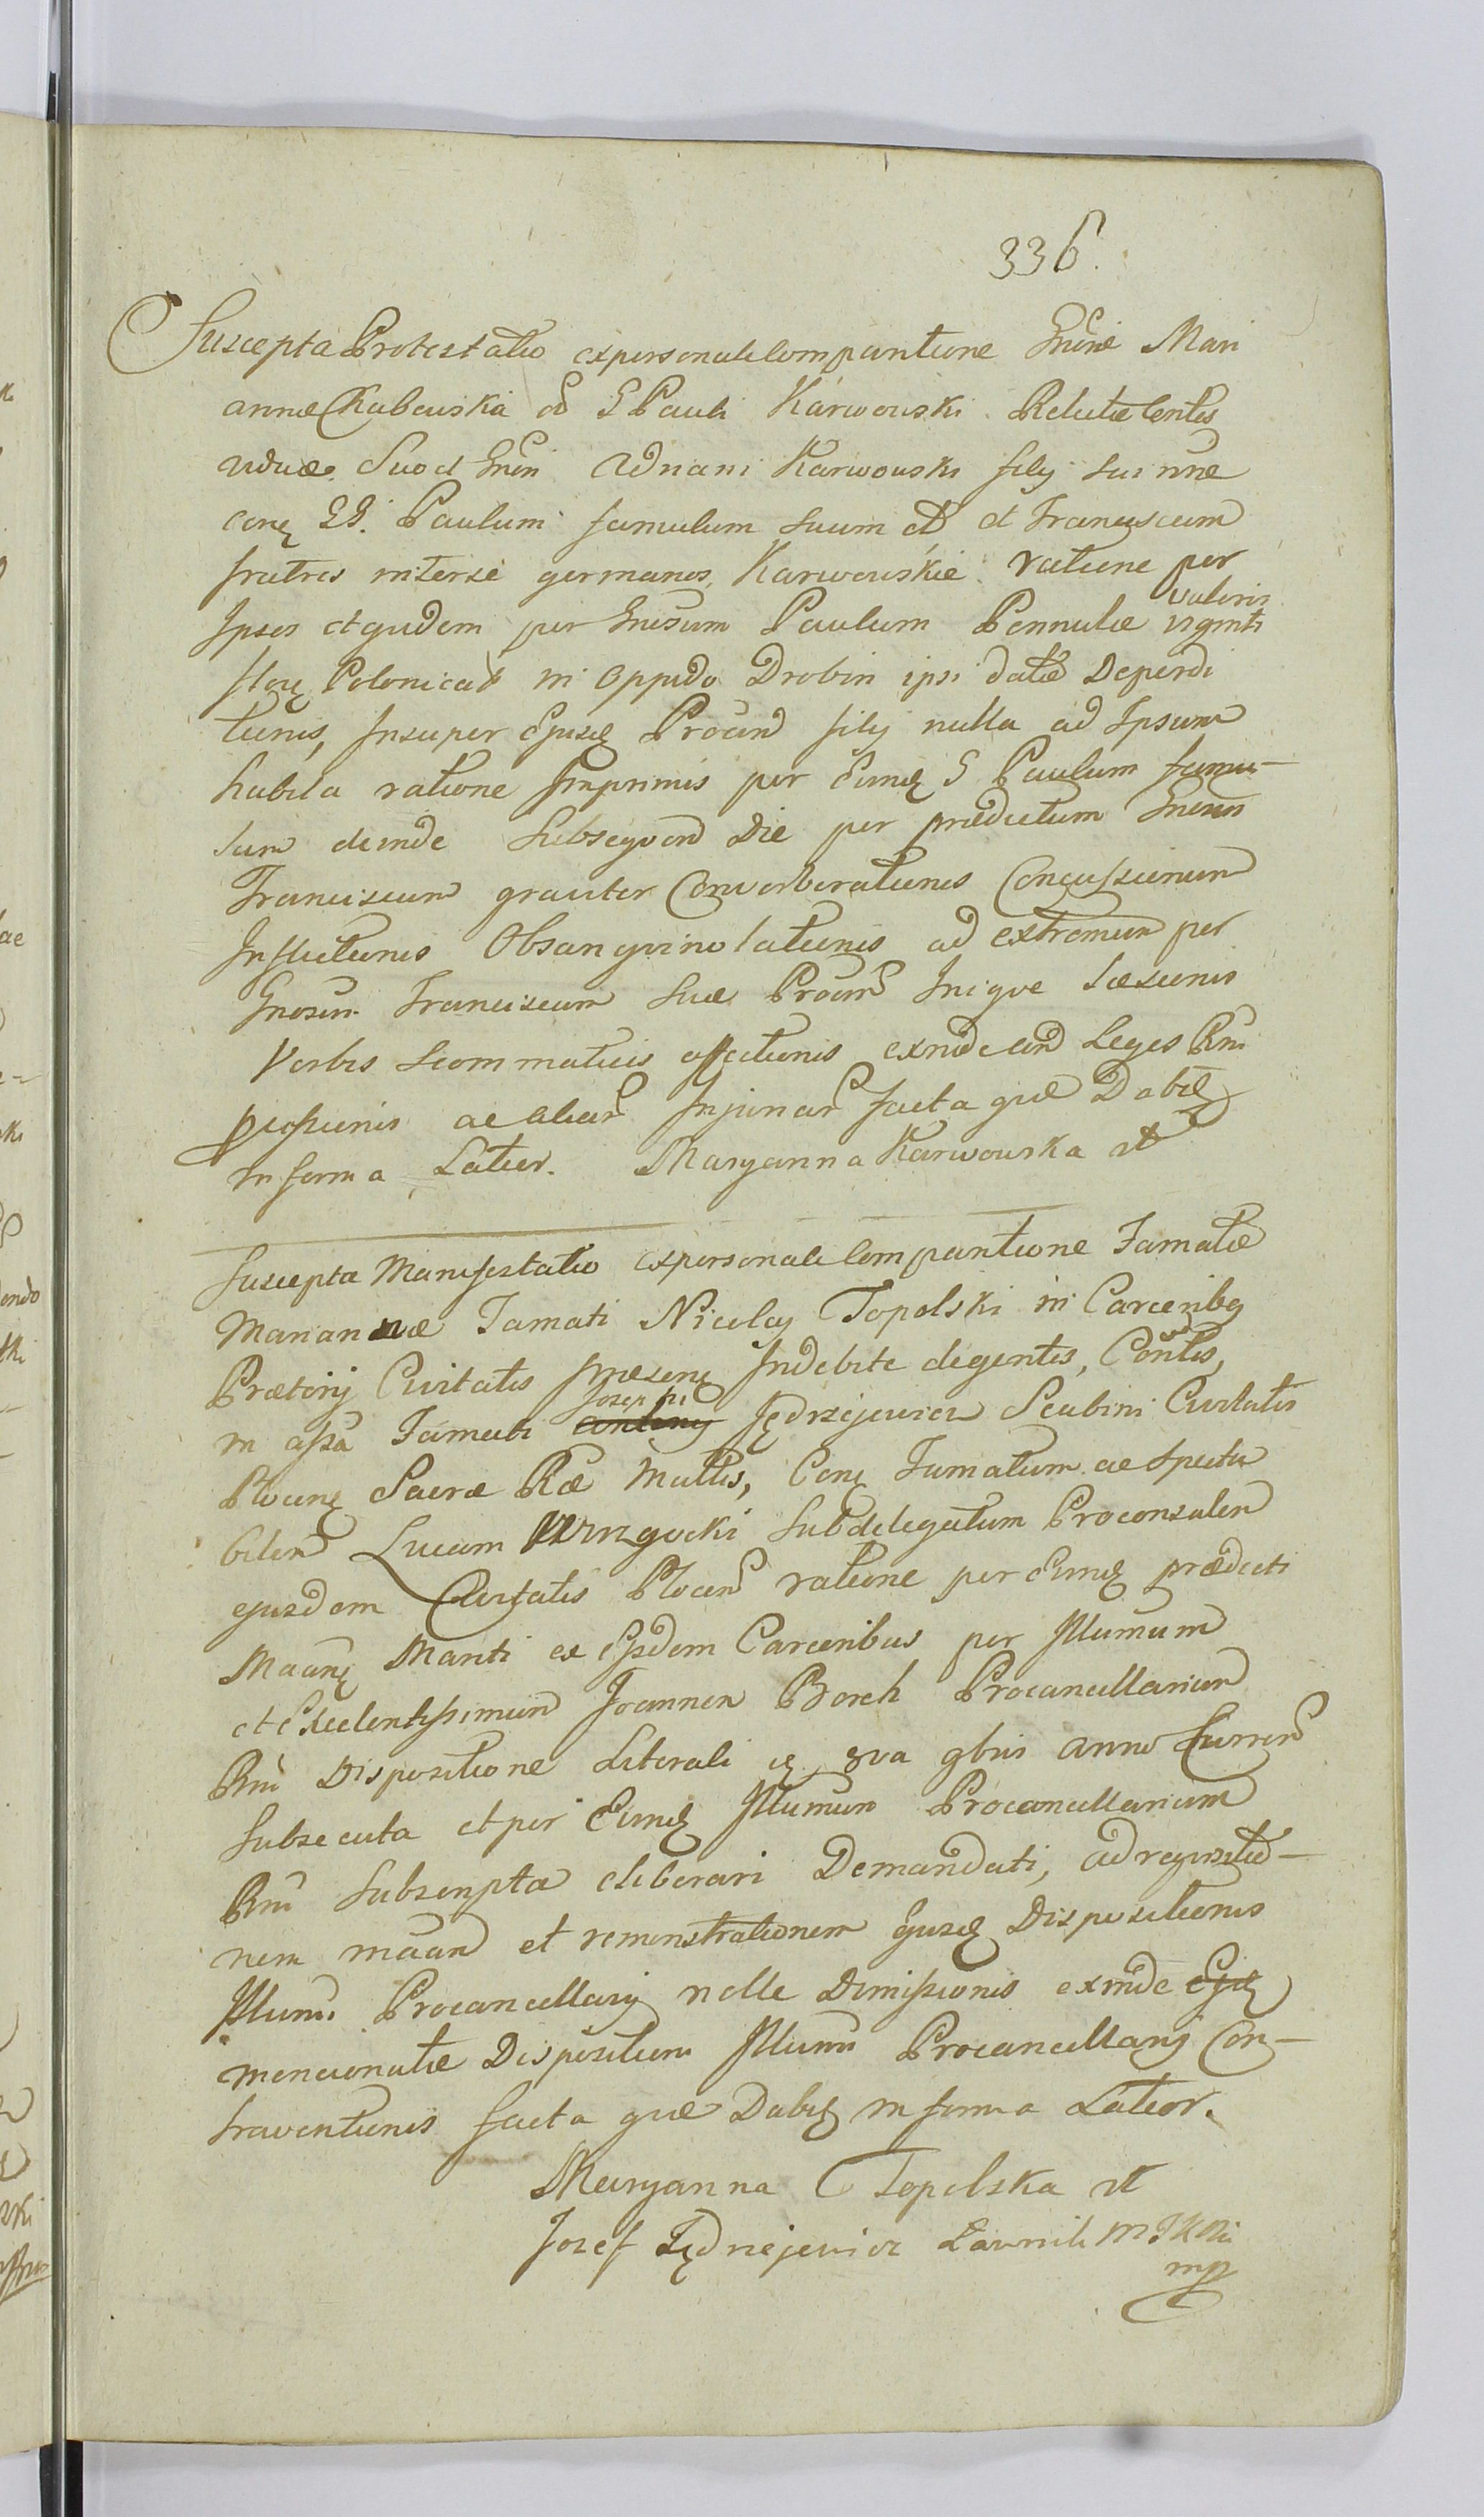 336.
Suscepta Protestatio ex personali Comparitione Gnẽnẽ Mari
annæ Kabenska od G Pauli Karwouski Relictæ Contis
viduæ. Suo et Gnẽn Adriani Karwouski filij sui nñe
conȩ GG. Paulum famulum suum et et Franciscum
fratres interse germanos, Karwouskie ratione per
Ipsos et qudem per Gnẽsum Paulum Pennulæ valoris viginti
florȩ Polonical in Oppido Drobin ipsi datæ Deperdi
tionis, Insuper Ejusȩ Procin filij nulla ad Ipsum
habita ratione Imprimis per Eunȩ G Paulum famu-
lum deinde Subseqven Die per prædictum Gnẽsum
Franciscum graviter Converberationis Concussionum
Inflictionis Obsangvinolationis ad extremum per
Gnosum Franciscum Suæ Procin Iniqve Læsionis
Verbis Scommaticis affectionis exinde in Leges Rni
peccationis ac aliar Injuriar facta quæ Dabiȩ
in forma Latior. Maryanna Karwouska rt
Suscepta Manifestatio ex personali Comparitione Famatæ
Mariannæ Famati Nicolaj Topolski in Carceribȩ
Prætorij Civitatis Præsenȩ Indebite degentis, Contis,
in assã Famati Josephi Jȩdrzejewicz Scabini Civitatis
Plocenȩ Sacræ Ræ Mattis, Conȩ Famatum ac Specta
bilem Lucam Subdelegatum Proconsulem
ejusdem Civitatis Plocen ratione per Eunȩ prædicti
Maanȩ Mariti ex Ejsdem Carceribus per Illumum
et Excelentissimum Joannem Borch Procancellarium
Rni Dispositione Literali 8va 9bris anno Curren
Subsecuta et per Eunȩ Illumum Procancellarium
Rni Subscripta eliberari Demandati, ad reqvisitio-
nem maan et remonstrationem Ejusȩ Dispositionis
Illumi Procancellarij nolle Dimissionis exinde Ejȩ
mencionatæ Disposition Illumi Procancellarij Con-
traventionis facta quæ Dabiȩ in forma Latior.
Maryanna Topolska rt
Jozef Jędrzejewicz Ławnik M J K Mci
mp